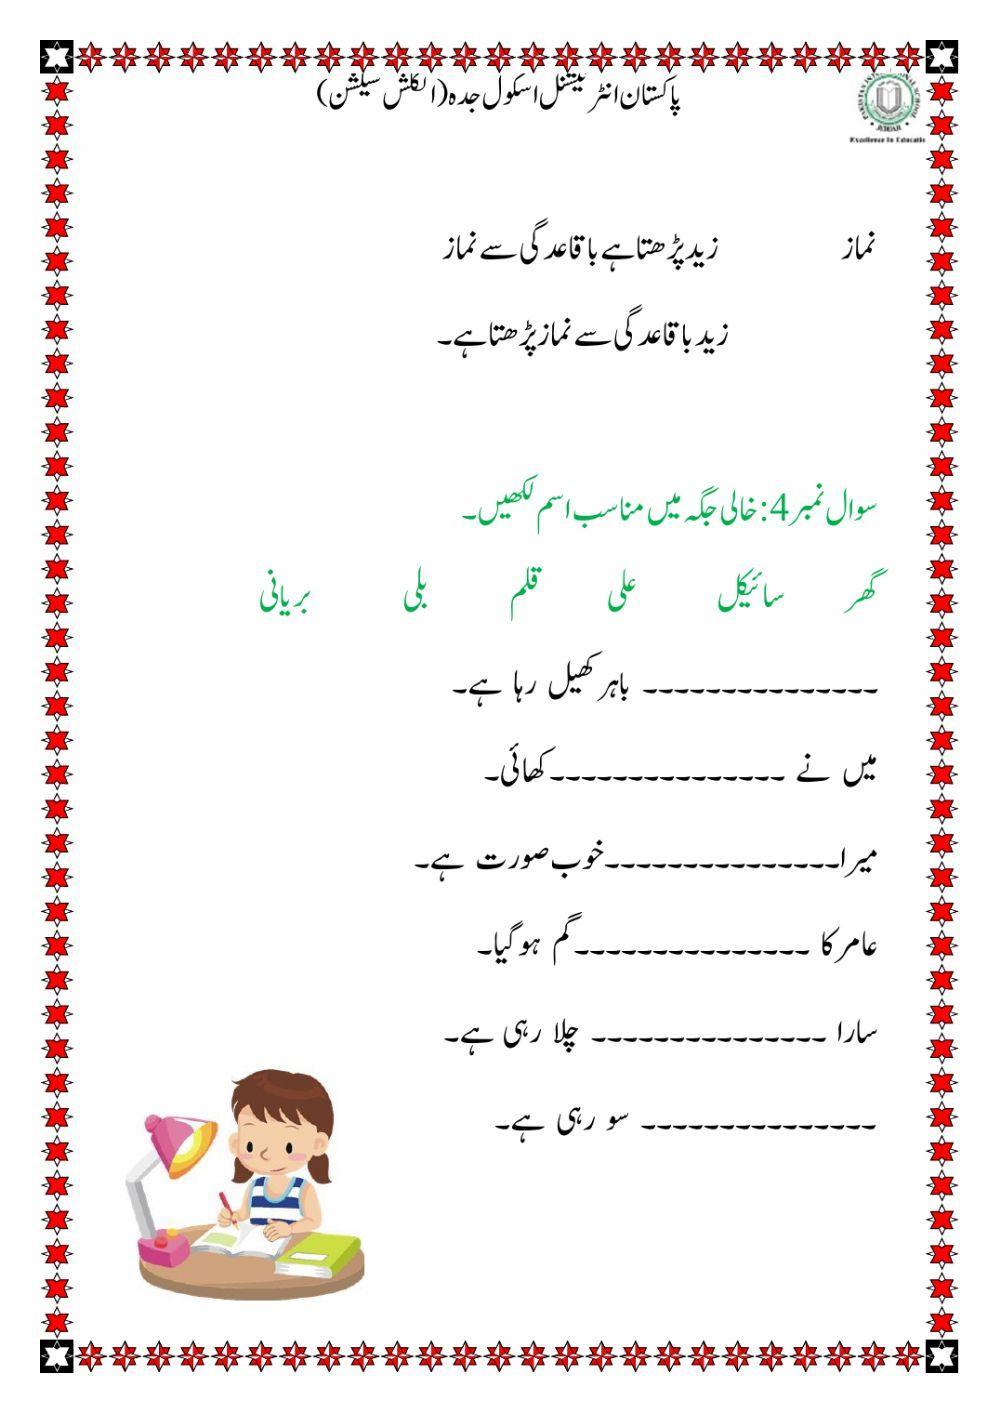 پاکستان انٹرنیشنل اسکول جدہ (انگلش سیکشن)
Excellence In Educatio
نماز زید پڑھتا ہے باقاعدگی سے نماز
زید باقاعدگی سے نماز پڑھتا ہے۔
سوال نمبر 4: خالی جگہ میں مناسب اسم لکھیں۔
گھر سائیکل علی قلم بلی بریانی
--------------- باہر کھیل رہا ہے۔
میں نے ---------------کھائی۔
میرا---------------خوب صورت ہے۔
عامر کا ---------------گم ہوگیا۔
سارا --------------- چلا رہی ہے۔
--------------- سو رہی ہے۔